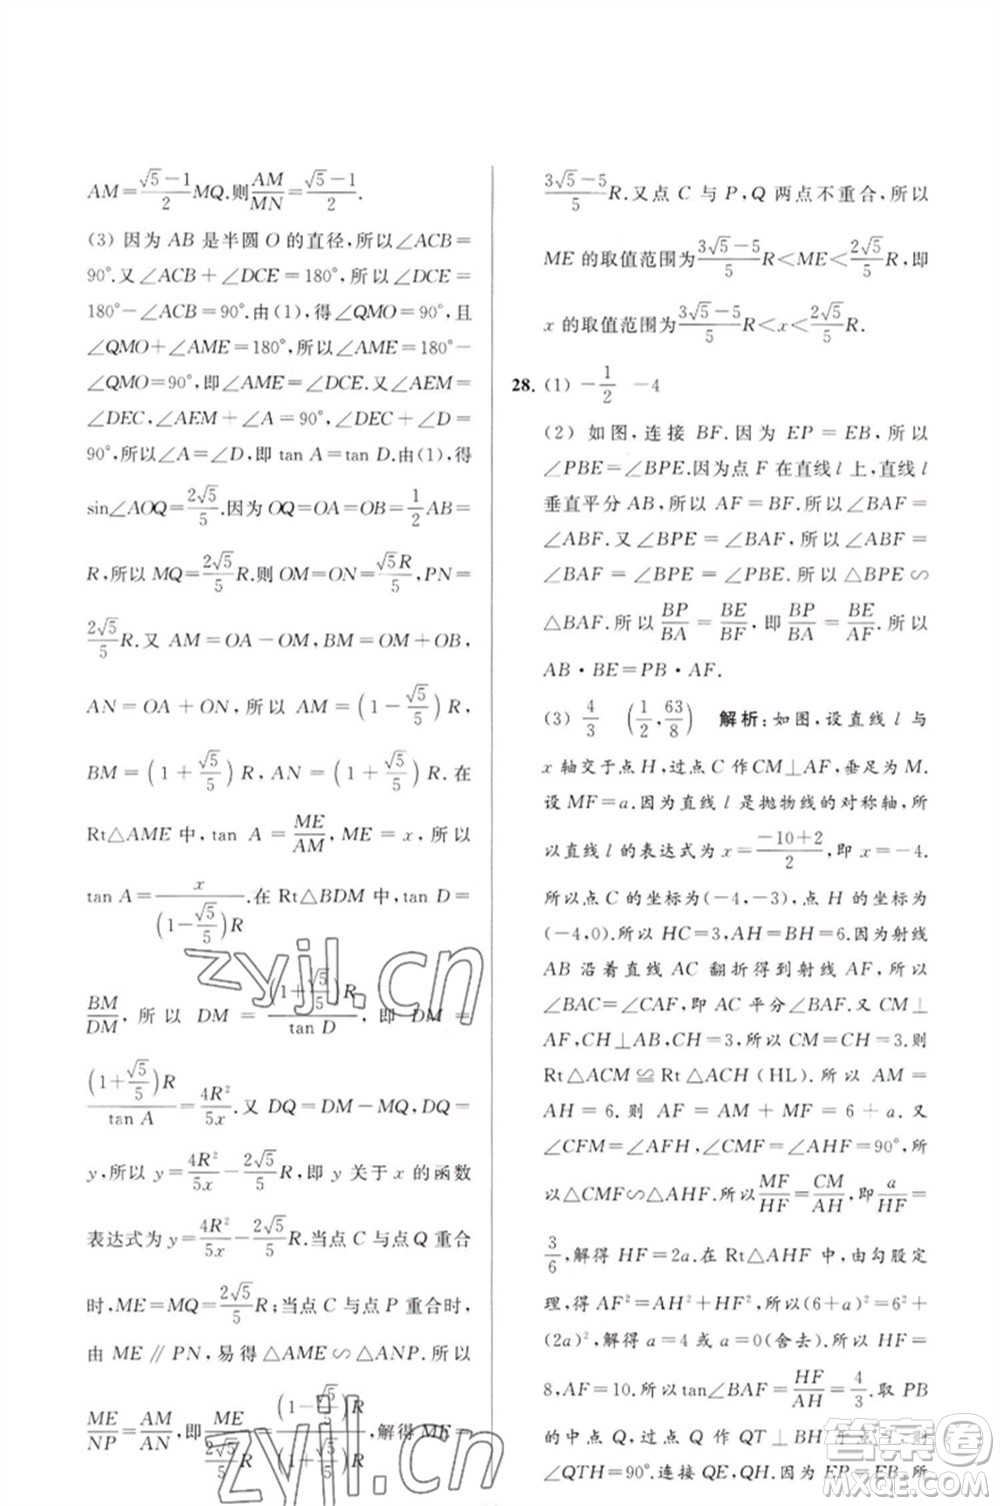 AM=\frac{√5-1}{2}MQ.则\frac{AM}{MN}=\frac{√5-1}{2}.
(3) 因为 AB 是半圆 O 的直径,所以∠ACB=
90°.又∠ACB+∠DCE=180°,所以∠DCE=
180°-∠ACB=90°.由(1),得∠QMO=90°,且
∠QMO+∠AME=180°,所以∠AME=180°-
∠QMO=90°,即∠AME=∠DCE.又∠AEM=
∠DEC,∠AEM+∠A=90°,∠DEC+∠D=
90°,所以∠A=∠D,即 tan A=tan D.由(1),得
sin∠AOQ=\frac{2√5}{5}.因为 OQ=OA=OB=\frac{1}{2}AB=
R,所以 MQ=\frac{2√5}{5}R.则 OM=ON=\frac{√5R}{5},PN=
\frac{2√5}{5}R.又 AM=OA-OM,BM=OM+OB,
AN=OA+ON,所以 AM=(1-\frac{√5}{5})R,
BM=(1+\frac{√5}{5})R,AN=(1+\frac{√5}{5})R.在
Rt△AME 中,tan A=\frac{ME}{AM},ME=x,所以
tan A=\frac{x}{(1-\frac{√5}{5})R}.在 Rt△BDM 中,tan D=
\frac{BM}{DM},所以 DM=\frac{(1+\frac{√5}{5})R}{tan D},即 DM=
\frac{(1+\frac{√5}{5})R}{tan A}=\frac{4R²}{5x}.又 DQ=DM-MQ,DQ=
y,所以 y=\frac{4R²}{5x}-\frac{2√5}{5}R,即 y 关于 x 的函数
表达式为 y=\frac{4R²}{5x}-\frac{2√5}{5}R.当点 C 与点 Q 重合
时,ME=MQ=\frac{2√5}{5}R;当点 C 与点 P 重合时,
由 ME∥PN,易得△AME∽△ANP.所以
\frac{ME}{NP}=\frac{AM}{AN},即\frac{ME}{\frac{2√5}{5}R}=\frac{(1-\frac{√5}{5})R}{(1+\frac{√5}{5})R},解得 ME=
\frac{3√5-5}{5}R.又点 C 与 P,Q 两点不重合,所以
ME 的取值范围为\frac{3√5-5}{5}R<ME<\frac{2√5}{5}R,即
x 的取值范围为\frac{3√5-5}{5}R<x<\frac{2√5}{5}R.
28. (1) -\frac{1}{2} -4
(2) 如图,连接 BF.因为 EP=EB,所以
∠PBE=∠BPE.因为点 F 在直线 l 上,直线 l
垂直平分 AB,所以 AF=BF.所以∠BAF=
∠ABF.又∠BPE=∠BAF,所以∠ABF=
∠BAF=∠BPE=∠PBE.所以△BPE∽
△BAF.所以\frac{BP}{BA}=\frac{BE}{BF},即\frac{BP}{BA}=\frac{BE}{AF}.所以
AB·BE=PB·AF.
(3) \frac{4}{3} (\frac{1}{2},\frac{63}{8}) 解析:如图,设直线 l 与
x 轴交于点 H,过点 C 作 CM⊥AF,垂足为 M.
设 MF=a.因为直线 l 是抛物线的对称轴,所
以直线 l 的表达式为 x=\frac{-10+2}{2},即 x=-4.
所以点 C 的坐标为(-4,-3),点 H 的坐标为
(-4,0).所以 HC=3,AH=BH=6.因为射线
AB 沿着直线 AC 翻折得到射线 AF,所以
∠BAC=∠CAF,即 AC 平分∠BAF.又 CM⊥
AF,CH⊥AB,CH=3,所以 CM=CH=3.则
Rt△ACM≌Rt△ACH(HL).所以 AM=
AH=6.则 AF=AM+MF=6+a.又
∠CFM=∠AFH,∠CMF=∠AHF=90°,所
以△CMF∽△AHF.所以\frac{MF}{HF}=\frac{CM}{AH},即\frac{a}{HF}=
\frac{3}{6},解得 HF=2a.在 Rt△AHF 中,由勾股定
理,得 AF²=AH²+HF²,所以(6+a)²=6²+
(2a)²,解得 a=4 或 a=0(舍去).所以 HF=
8,AF=10.所以 tan∠BAF=\frac{HF}{AH}=\frac{4}{3}.取 PB
的中点 Q,作 QT⊥BH 于点 T,则
∠QTH=90°.连接 QE,QH.因为 EP=EB,
zyjl.cn
zyjl.cn
答案卷
MXQE.COM